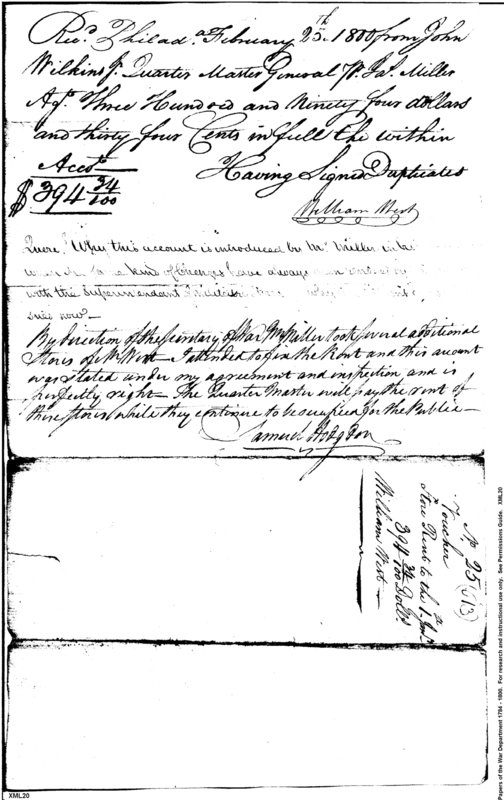 Rec.d Philad.a February 25th 1800 from John
Wilkins Jr. Quarter Master General Pr. Jas. Miller
Agt. Three Hundred and Ninety four dollars
and thirty four Cents in full the within
Acct.
Having Signed Duplicates
$394 34/100
William West
Quere. Why this account is introduced by Mr. Miller
kind of Charges have always
with the Superintendant
since now?
By direction of the Secretary of War Mr Miller took several additional
Stores of Mr West - I attended to fix the Rent and this account
was stated under my agreement and inspection and is
perfectly right - The Quarter Master will pay the rent of
these stores while they continue to be occupied for the Public -
Samuel Hodgdon
No 25 (513)
Voucher
Store Rent to the 1st Jany.
394 34/100 Dolls.
William West
Papers of the War Department 1784 - 1800. For research and instructional use only. See Permissions Guide. XML20
XML20